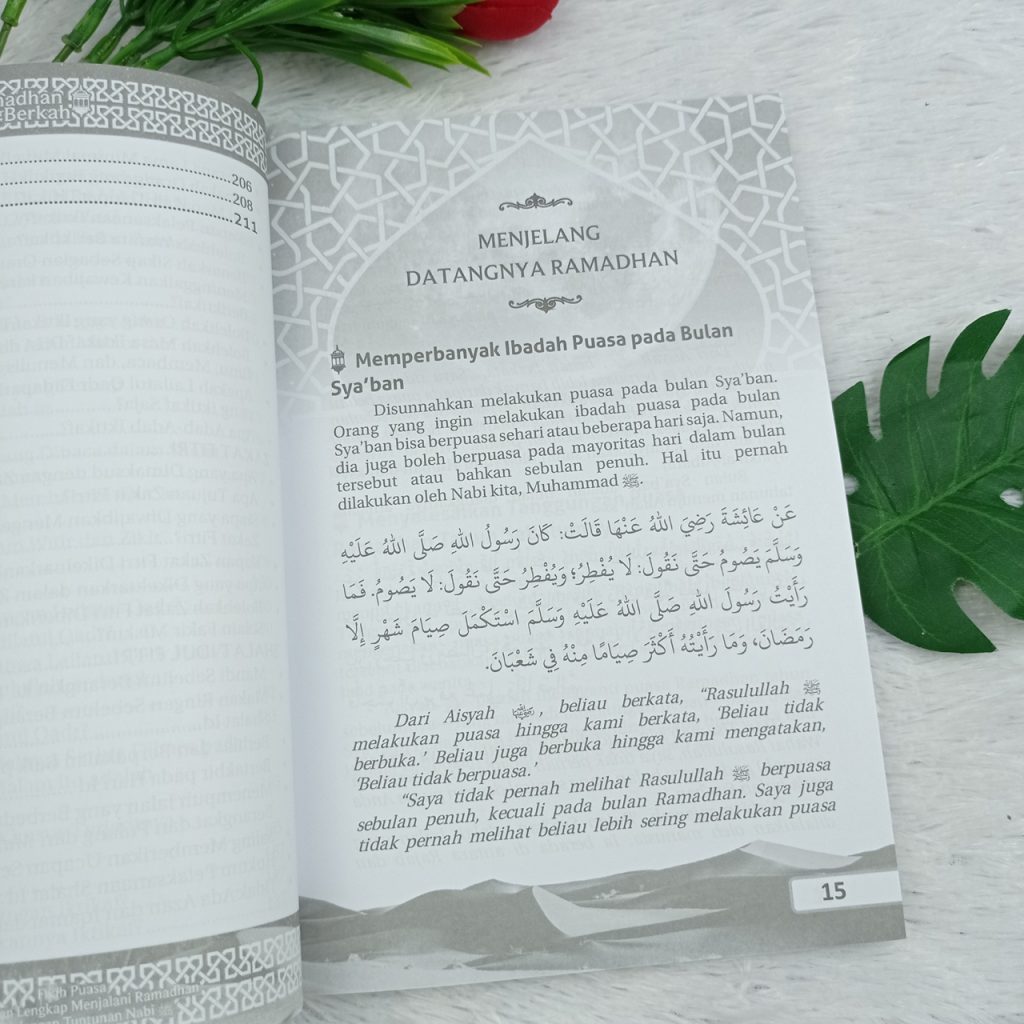 madhan
Berkah
206
208
211
Fiqih Puasa
Lengkap Menjalani Ramadhan
Tuntunan Nabi ﷺ
MENJELANG
DATANGNYA RAMADHAN
Memperbanyak Ibadah Puasa pada Bulan
Sya’ban
Disunnahkan melakukan puasa pada bulan Sya’ban.
Orang yang ingin melakukan ibadah puasa pada bulan
Sya’ban bisa berpuasa sehari atau beberapa hari saja. Namun,
dia juga boleh berpuasa pada mayoritas hari dalam bulan
tersebut atau bahkan sebulan penuh. Hal itu pernah
dilakukan oleh Nabi kita, Muhammad ﷺ.
عَنْ عَائِشَةَ رَضِيَ اللهُ عَنْهَا قَالَتْ: كَانَ رَسُولُ اللهِ صَلَّى اللهُ عَلَيْهِ
وَسَلَّمَ يَصُومُ حَتَّى نَقُولَ: لَا يُفْطِرُ؛ وَيُفْطِرُ حَتَّى نَقُولَ: لَا يَصُومُ. فَمَا
رَأَيْتُ رَسُولَ اللهِ صَلَّى اللهُ عَلَيْهِ وَسَلَّمَ اسْتَكْمَلَ صِيَامَ شَهْرٍ إِلَّا
رَمَضَانَ، وَمَا رَأَيْتُهُ أَكْثَرَ صِيَامًا مِنْهُ فِي شَعْبَانَ.
Dari Aisyah , beliau berkata, “Rasulullah ﷺ
melakukan puasa hingga kami berkata, ‘Beliau tidak
berbuka.’ Beliau juga berbuka hingga kami mengatakan,
‘Beliau tidak berpuasa.’
“Saya tidak pernah melihat Rasulullah ﷺ berpuasa
sebulan penuh, kecuali pada bulan Ramadhan. Saya juga
tidak pernah melihat beliau lebih sering melakukan puasa
15